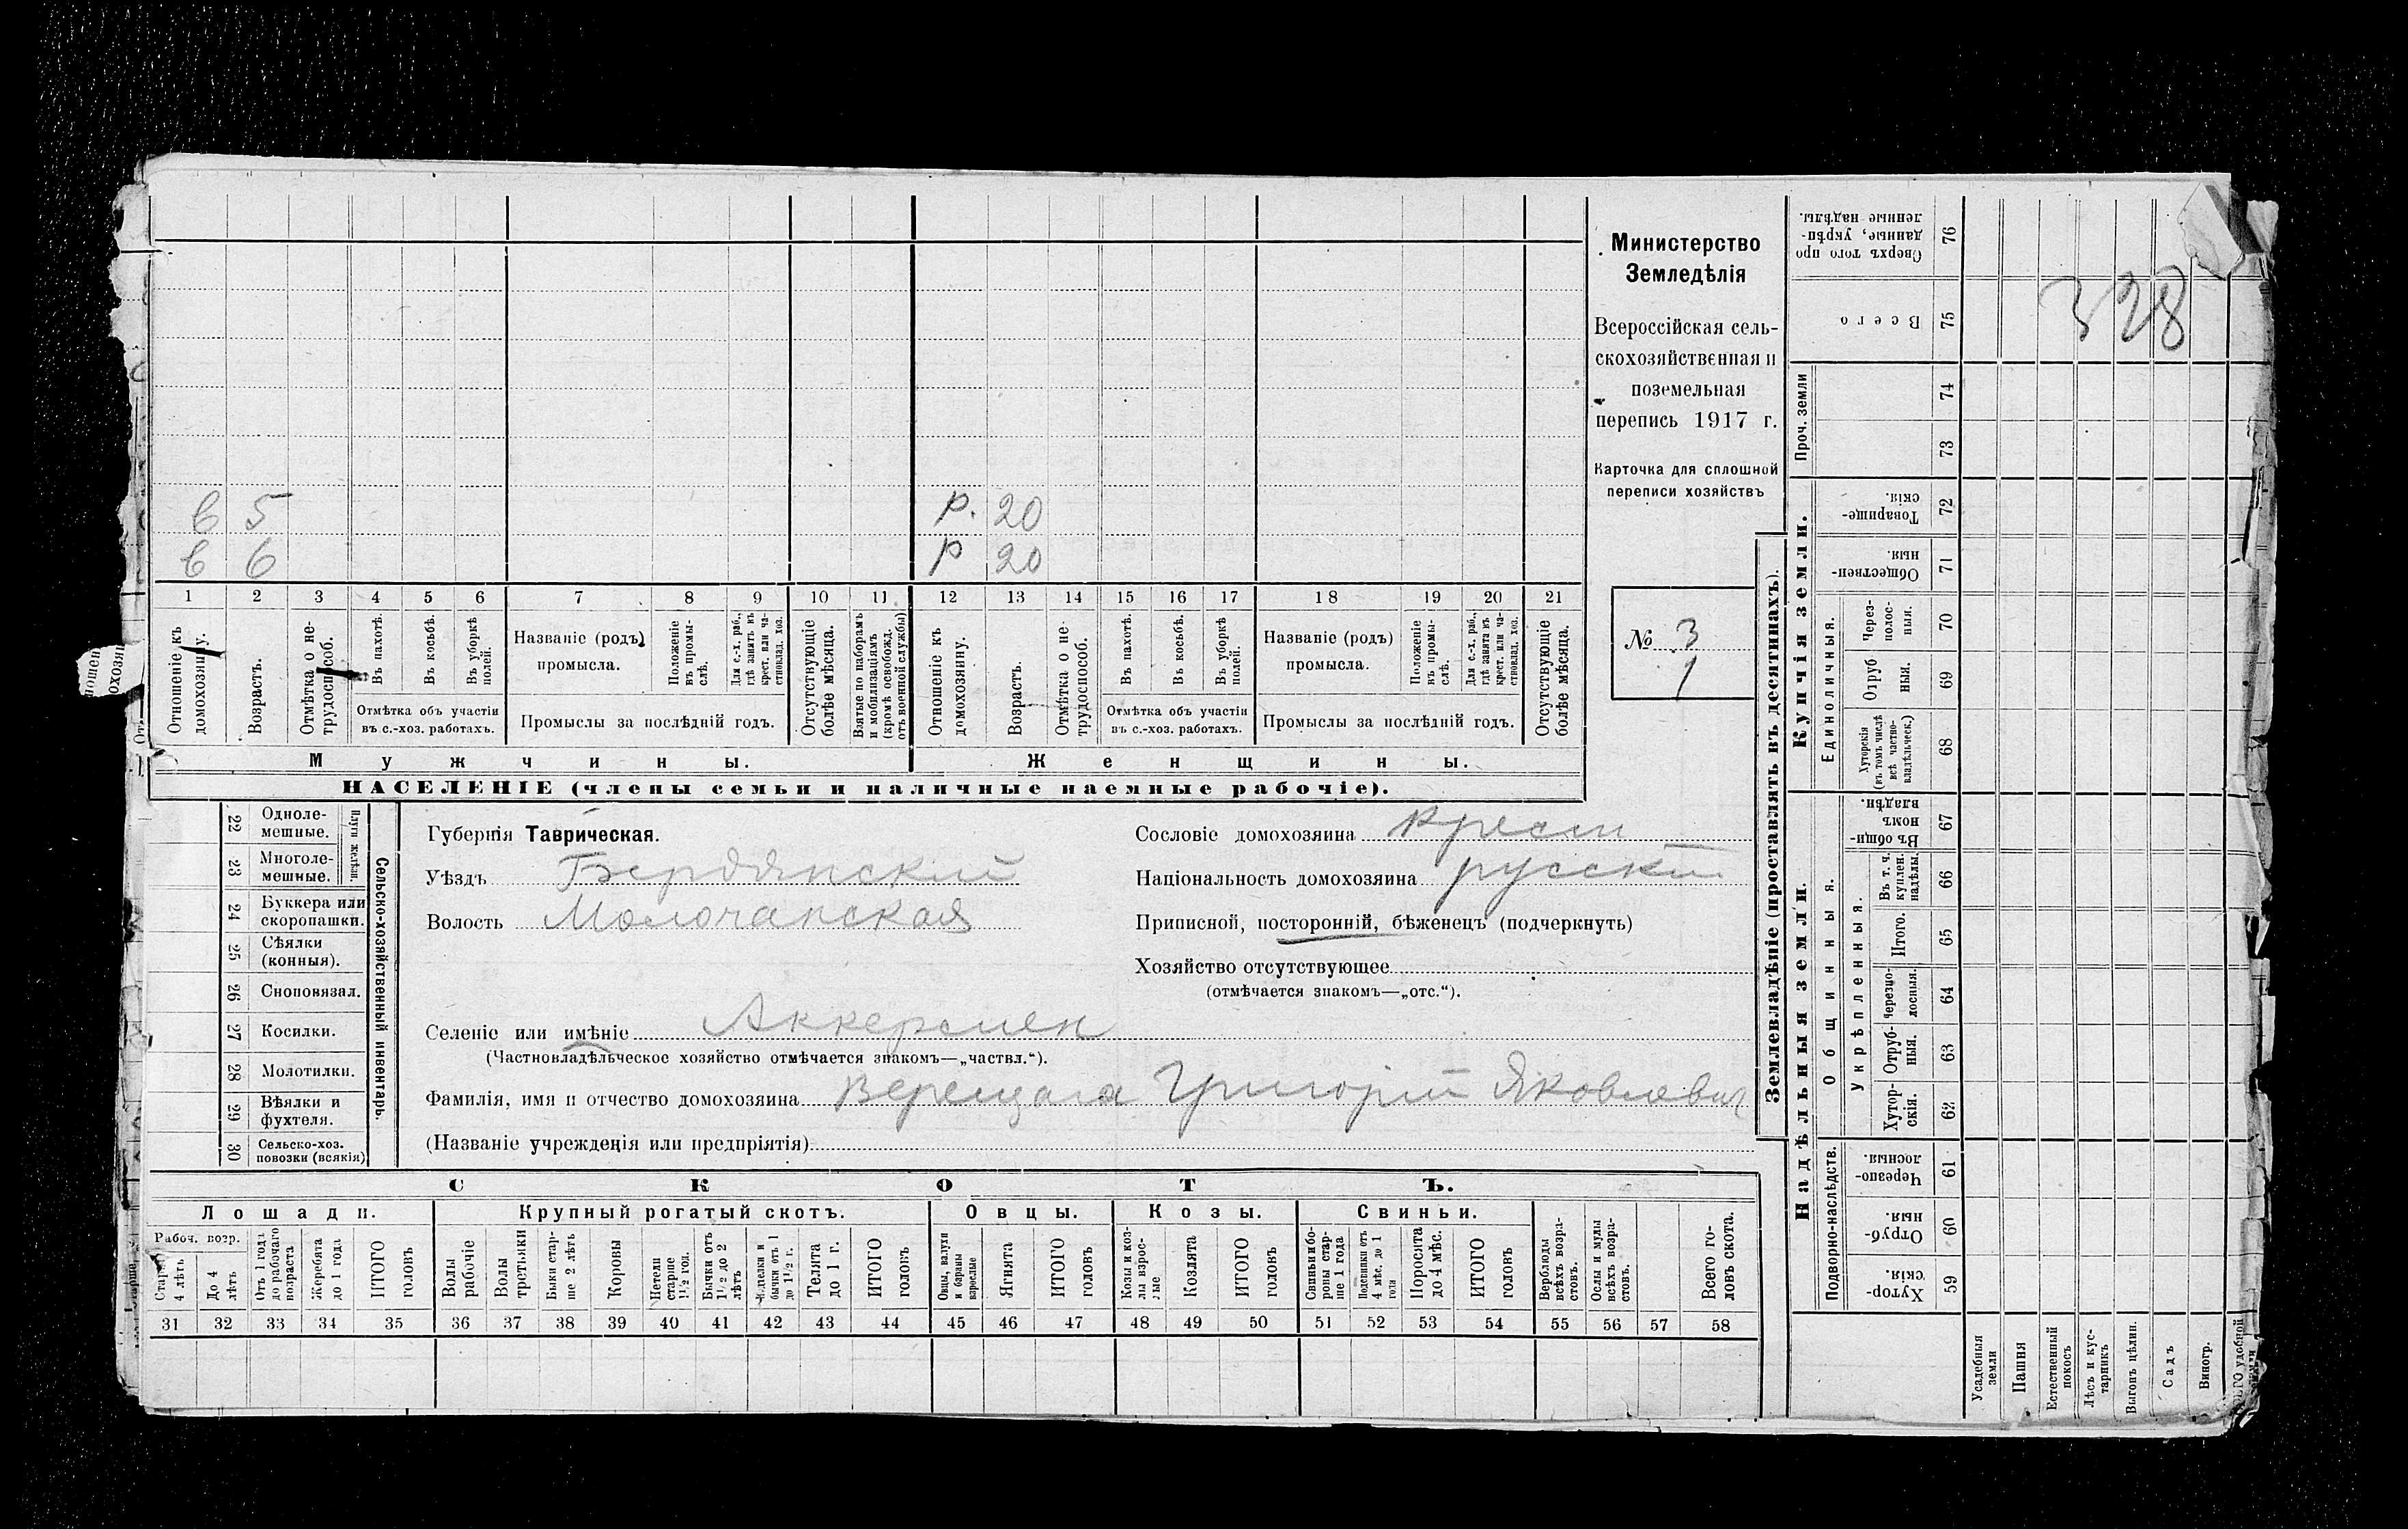 в 5 р. 20
в 6 р 20
1 2 3 4 5 6 7 8 9 10 11 12 13 14 15 16 17 18 19 20 21
Отношеніе къ домохозяину.
Возрастъ.
Отмѣтка о нетрудоспособ.
Въ пахотѣ.
Въ косьбѣ.
Въ уборкѣ полей.
Отмѣтка объ участіи
въ с.-хоз. работахъ.
Названіе (родъ)
промысла.
Положеніе въ промыслѣ.
Для с.-х. раб., гдѣ занятъ въ крест. или частновлад. хоз.
Промыслы за послѣдній годъ.
Отсутствующіе болѣе мѣсяца.
Взятые по наборамъ и мобилизаціямъ (кромѣ освобожд. отъ военной службы)
Отношеніе къ домохозяину.
Возрастъ.
Отмѣтка о нетрудоспособ.
Въ пахотѣ.
Въ косьбѣ.
Въ уборкѣ полей.
Отмѣтка объ участіи
въ с.-хоз. работахъ.
Названіе (родъ)
промысла.
Положеніе въ промыслѣ.
Для с.-х. раб., гдѣ занята въ крест. или частновлад. хоз.
Промыслы за послѣдній годъ.
Отсутствующіе болѣе мѣсяца.
Мужчины. Женщины.
НАСЕЛЕНІЕ (члены семьи и наличные наемные рабочіе).
Министерство
Земледѣлія
Всероссійская сель-
скохозяйственная и
поземельная
перепись 1917 г.
Карточка для сплошной
переписи хозяйствъ
№ 3
1
Сельско-хозяйственный инвентарь.
Плуги желѣзн.
22 Одноле-
мешные.
23 Многоле-
мешные.
24 Буккера или
скоропашки.
25 Сѣялки
(конныя).
26 Сноповязал.
27 Косилки.
28 Молотилки.
29 Вѣялки и
фухтеля.
30 Сельско-хоз.
повозки (всякія)
Губернія Таврическая.
Уѣздъ Бердянский
Волость Молочанская
Сословіе домохозяина крест
Національность домохозяина русскій
Приписной, посторонній, бѣженецъ (подчеркнуть)
Хозяйство отсутствующее
(отмѣчается знакомъ—„отс.“).
Селеніе или имѣніе Аккермен
(Частновладѣльческое хозяйство отмѣчается знакомъ—„частвл.“).
Фамилія, имя и отчество домохозяина Верещага Григорій Яковлевич
(Названіе учрежденія или предпріятія)
СКОТЪ.
Лошади. Крупный рогатый скотъ. Овцы. Козы. Свиньи.
Рабоч. возр.
4 лѣтъ
До 4 лѣтъ
Отъ 1 года до рабочаго возраста
Жеребята до 1 года
ИТОГО головъ
Волы рабочіе
Волы третьяки
Быки старше 2 лѣтъ
Коровы
Нетели старше 1½ год.
Бычки отъ 1½ до 2 лѣтъ
бычки отъ 1 до 1½ г.
Телята до 1 г.
ИТОГО головъ
Овцы, валухи и бараны взрослые
Ягнята
ИТОГО головъ
Козы и козлы взрослые
Козлята
ИТОГО головъ
Свиньи и боровы старше 1 года
Подсвинки отъ 4 мѣс. до 1 года
Поросята до 4 мѣс.
ИТОГО головъ
Верблюды всѣхъ возрастовъ.
Ослы и мулы всѣхъ возрастовъ.
Всего головъ скота.
31 32 33 34 35 36 37 38 39 40 41 42 43 44 45 46 47 48 49 50 51 52 53 54 55 56 57 58
Землевладѣніе (проставлять въ десятинахъ).
328
Сверхъ того проданные, укрѣпленные надѣлы. 76
Всего 75
Проч. земли 74
73
Купчія земли.
Товарищескія. 72
Общественныя. 71
Единоличныя.
Черезполосныя. 70
Отрубныя. 69
Хуторскія (въ томъ числѣ всѣ частновладѣльческ.) 68
Надѣльныя земли.
Общинныя.
Въ общинномъ владѣн. 67
Укрѣпленныя.
Въ т. ч. куплен. надѣлы. 66
Итого. 65
Черезполосныя. 64
Отрубныя. 63
Хуторскія. 62
Подворно-наслѣдств.
Черезполосныя. 61
Отрубныя. 60
Хуторскія. 59
Усадебныя земли
Пашня
Естественный покосъ
Лѣсъ и кустарникъ
Выгонъ цѣлин.
Садъ
Виногр.
удобной